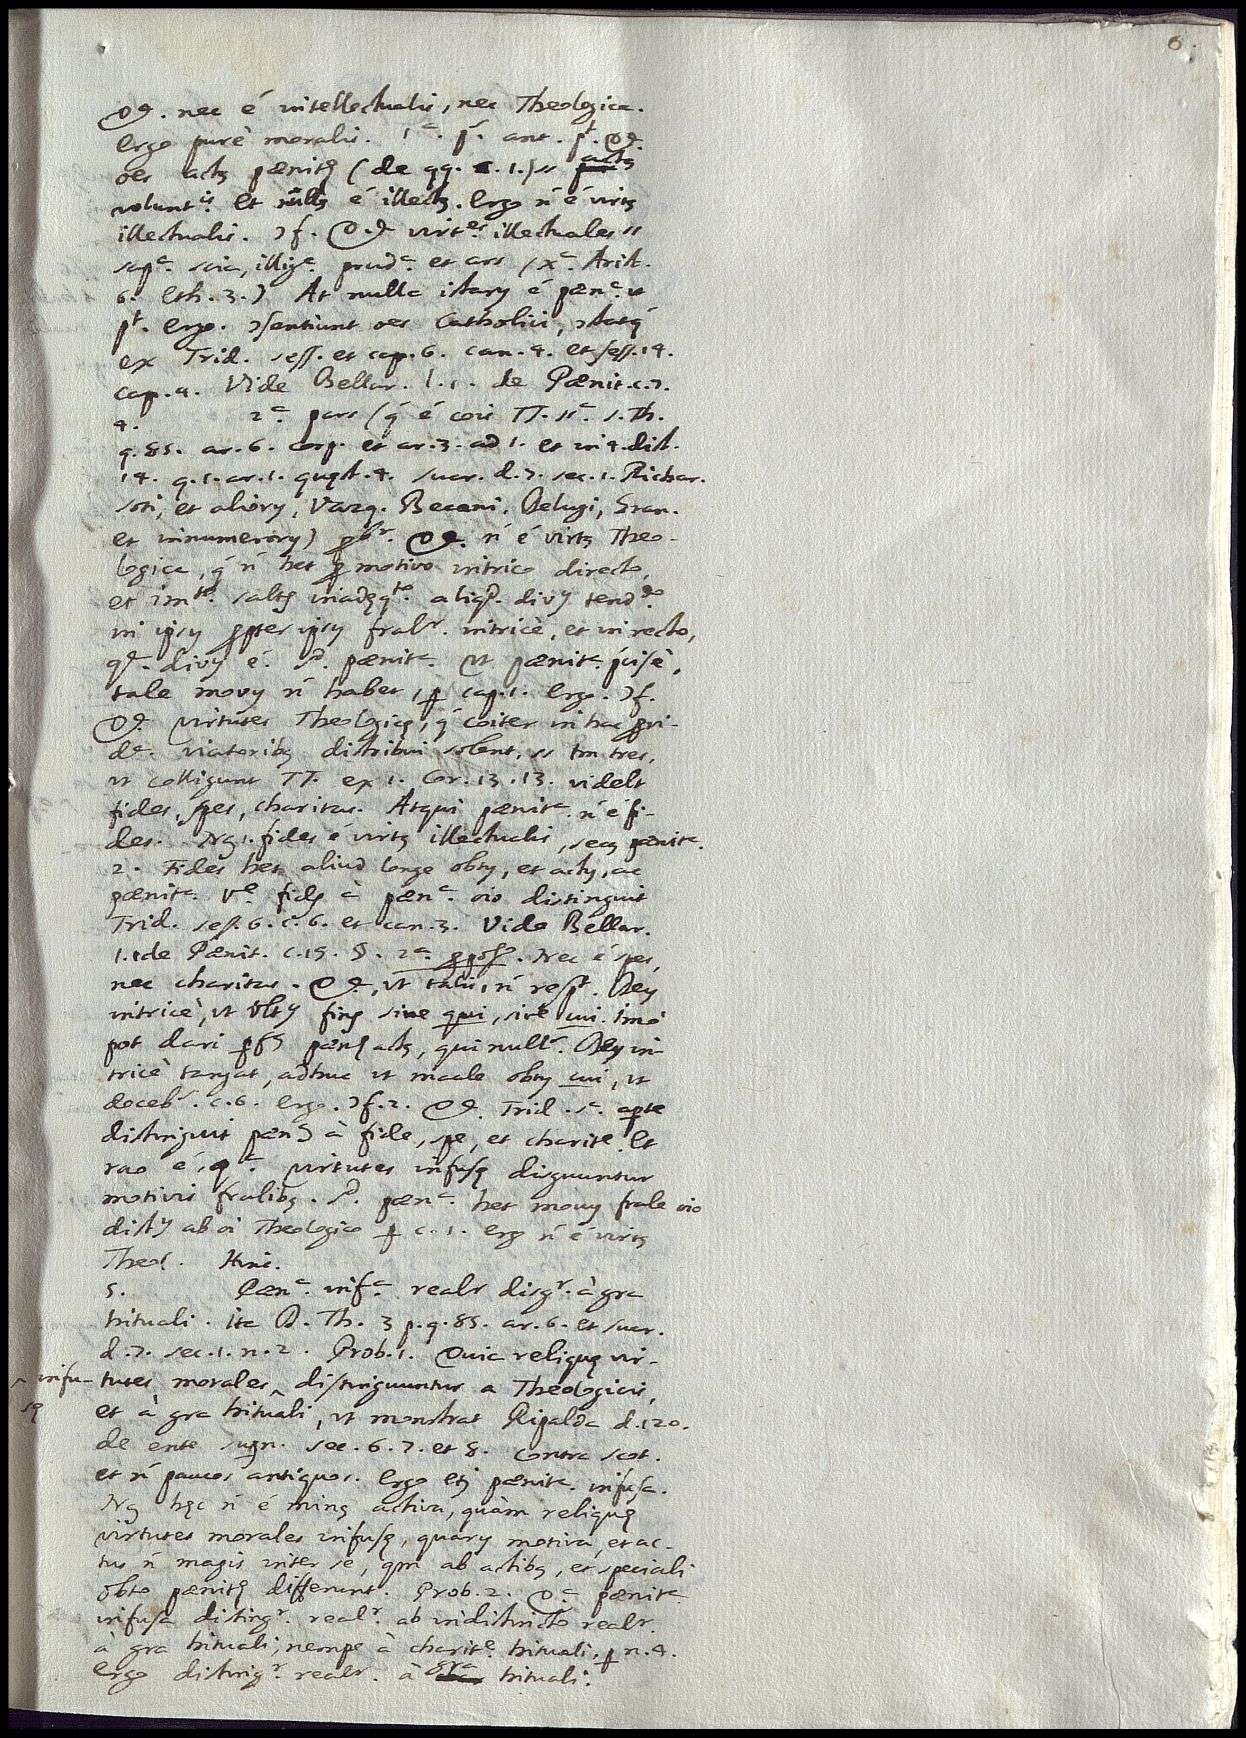 6.
Qª. nec é intellectualis, nec Theologica.
Ergo purè moralis. 1.ª p. ant. pt. Qª.
oes acts pænitę (de qq. c. 1.) ss acts
volunt.is Et nulls é illects. Ergo ń é virts
illectualis. Ɔf. Qª virt.es illectuales ss
sap.ª scia, illig.ª prud.ª et ars (xª. Arist.
6. Eth. 3.) At nulla istarų é pæn.ª ut
pt. Ergo. Ɔsentiunt oes Catholici,
ex Trid. sess. et cap. 6. can. 4. et sess. 14.
cap. 4. Vide Bellar. l. 1. de Pænit. c. 7.
4. 2.ª pars (q́ é cois TT. S. Th.
q. 85. ar. 6. corp. et ar. 3. ad 1. et in 4. dist.
14. q. 1. ar. 1. quęst. 4. suar. d. 7. sec. 1. Richar.
soti, et aliorų, Vazq. Becani, Delugi, Gran.
et innumerorų) pbr. Qª. ń é virts Theo-
logica, q́ ń het p motivo intrico directo,
et im.te saltę inadęq.to aliqd. divų tend.do
in ipsų ppter ipsų fral.r intricè, et in recto,
qd. divų é. sd. pænit.ª ut pænit.ª pcisè,
tale movų ń habet, p cap. 1. Ergo. Ɔf.
Qª. virtutes Theologicę, q́ coiter in hac pvi-
d.ª viatoribs distribui solent, ss tm tres,
ut colligunt TT. ex 1. Cor. 13. 13. videlt
fides, spes, charitas. Atqui pænit.ª ń é fi-
des. Ns 1. fides é virts illectualis, secs pænit.ª
2. Fides het aliud longe obtų, et actų, ac
pænit.ª Vª fidę à pæn.ª oio distinguit
Trid. sess. 6. c. 6. et can. 3. Vide Bellar.
l. 1. de Pænit. c. 19. §. 2.ª pposo. Nec é spes,
nec charitas. Qª, ut talis, ń respt. Deų
intricè, ut obtų finę sive qui, sive cui. Imo
pot dari pfs pænę acts, qui null.r Deų in-
tricè tangat, adhuc ut maale obtų cui, ut
doceb.r c. 6. Ergo. Ɔf. 2. Qª. Trid. s.ª apte
distinguit pæną à fide, spe, et charit.e Et
rao é, q.ª virtutes infusę disguuntur
motivis fralibs. sd. pæn.ª het movų frale oio
distų ab oi Theologico p c. 1. Ergo ń é virts
Theol. Hinc.
5. Pæn.ª inf.ª realr disg.r à gra
hituali. Ita D. Th. 3 p. q. 85. ar. 6. et suar.
d. 7. sec. 1. n. 2. Prob. 1. Quia reliquę vir-
tutes morales ^ infu-sę distinguuntur a Theologicis,
et à gra hituali, ut monstrat Ripalda d. 120.
de ente supn. sec. 6. 7. et 8. contra scot.
et ń paucos antiquos. Ergo etį pænit.ª infusa.
Ns hęc ń é mins activa, quàm reliquę
virtutes morales infusę, quarų motiva, et ac-
tus ń magis inter se, qm ab actibs, et speciali
obto pænitę differunt. Prob. 2. Q.ª pænit.ª
infusa disting.r real.r ab indistincto realr.
à gra hituali; nempe à charit.e hituali, p n. 4.
Ergo disting.r realr. à gra hituali.